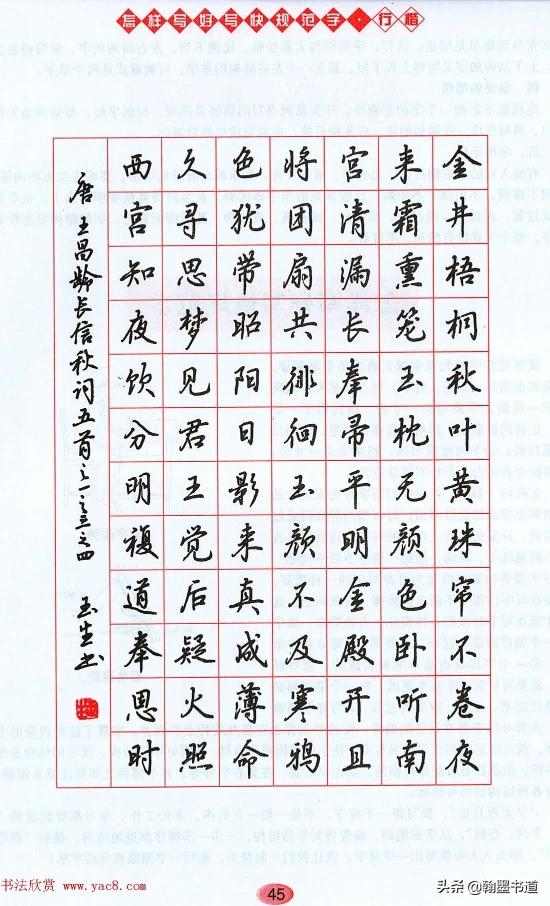 怎样写好写快规范字·行楷
金井梧桐秋叶黄珠帘不卷夜
来霜熏笼玉枕无颜色卧听南
宫清漏长奉帚平明金殿开且
将团扇共徘徊玉颜不及寒鸦
色犹带昭阳日影来真成薄命
久寻思梦见君王觉后疑火照
西宫知夜饮分明複道奉恩时
唐王昌龄长信秋词五首之一之三之四 玉生书
书法欣赏 www.yac8.com
45
头条@翰墨书道